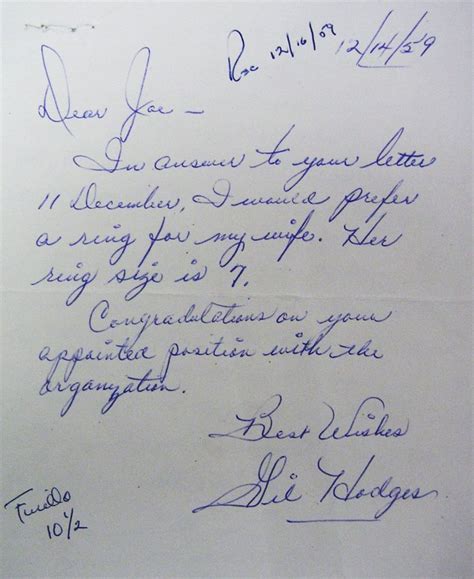 Rec 12/16/59
12/14/59
Dear Joe —
In answer to your letter
11 December, I would prefer
a ring for my wife. Her
ring size is 7.
Congradulations on your
appointed position with the
organyzation.
Best Wishes
Gil Hodges
Furillo
10 1/2